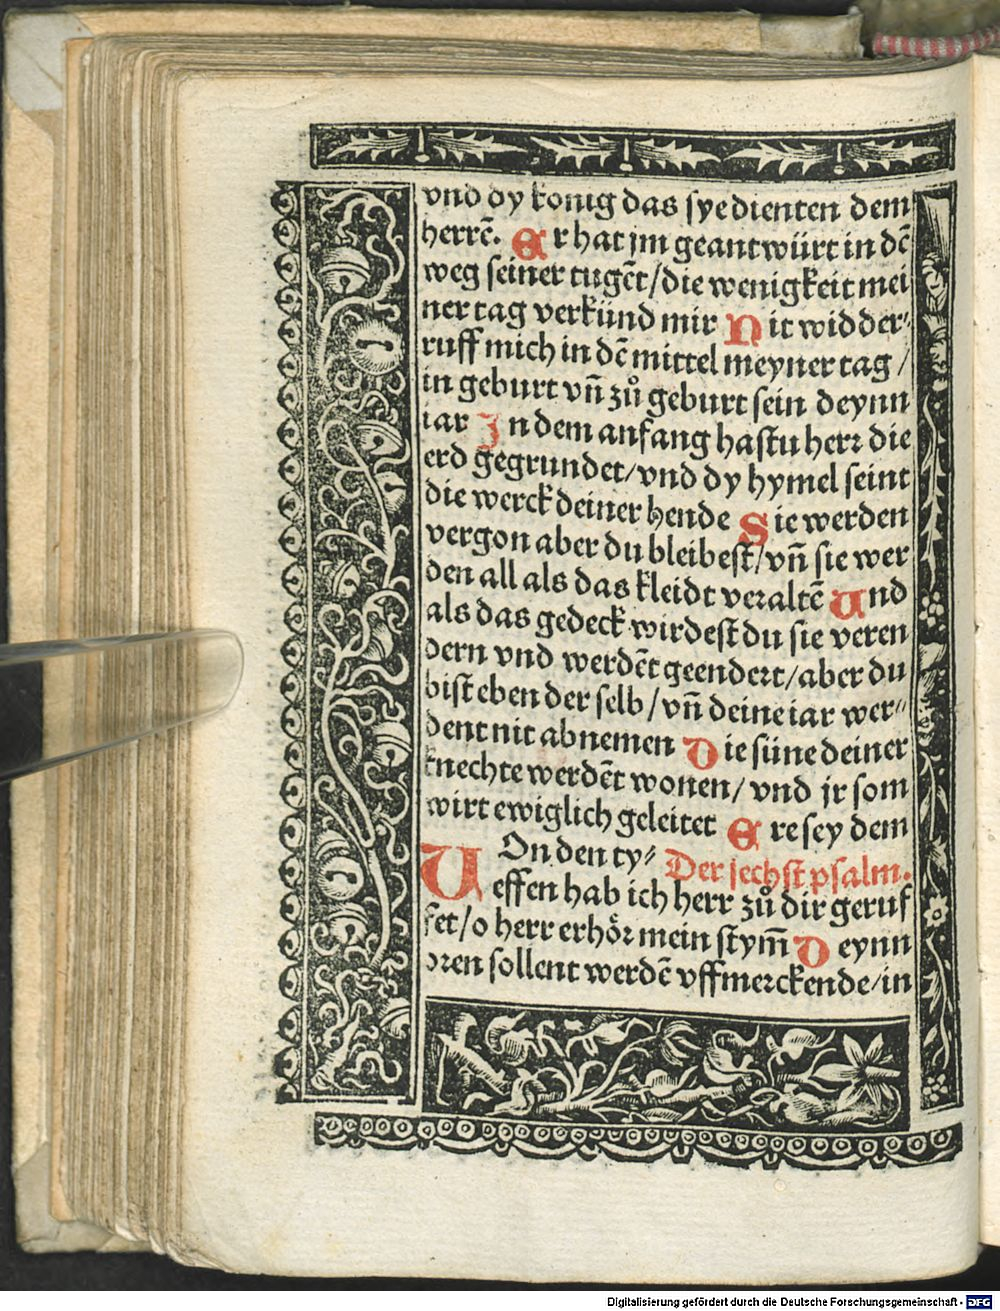 vnd dy konig das sye dienten dem
herrē. Er hat jm geantwürt in dē
weg seiner tugēt/die wenigkeit mei
ner tag verkünd mir Nit widder⸗
ruff mich in dē mittel meyner tag /
in geburt vn̄ zů geburt sein deynn
iar In dem anfang hastu herr die
erd gegrundet/vnd dy hymel seint
die werck deiner hende Sie werden
vergon aber du bleibest/vn̄ sie wer
den all als das kleidt veraltē Und
als das gedeck wirdest du sie veren
dern vnd werdēt geendert/aber du
bist eben der selb/vn̄ deine iar wer⸗
dent nit abnemen Die süne deiner
knechte werdēt wonen/vnd jr som
wirt ewiglich geleitet Ere sey dem
Der sechst psalm.
UOn den ty⸗
effen hab ich herr zů dir geruf
fet/o herr erhör mein stym̄ Deynn
oren sollent werdē vffmerckende/in
Digitalisierung gefördert durch die Deutsche Forschungsgemeinschaft - DFG